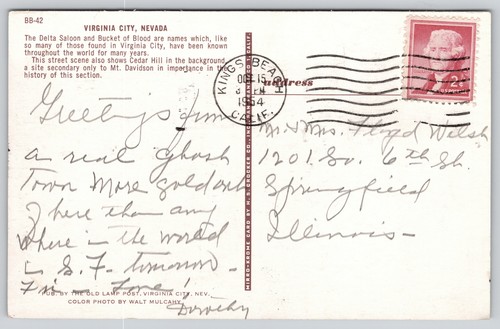 BB-42
VIRGINIA CITY, NEVADA
The Delta Saloon and Bucket of Blood are names which, like
so many of those found in Virginia City, have been known
throughout the world for many years.
This street scene also shows Cedar Hill in the background,
a site secondary only to Mt. Davidson in importance in the
history of this section.
KINGS BEACH
OCT 15
PM
1954
CALIF.
Address
2¢
Greetings from
a real ghost
Town More gold out
of here than any
where in the world
in S.F. tomorrow -
Fri - Love!
Dorothy
Mr & Mrs. Floyd Welsh
1201 So. 6th St.
Springfield
Illinois -
MIRRO-KROME CARD BY H. S. CROCKER CO., INC.
PUB. BY THE OLD LAMP POST, VIRGINIA CITY, NEV.
COLOR PHOTO BY WALT MULCAHY